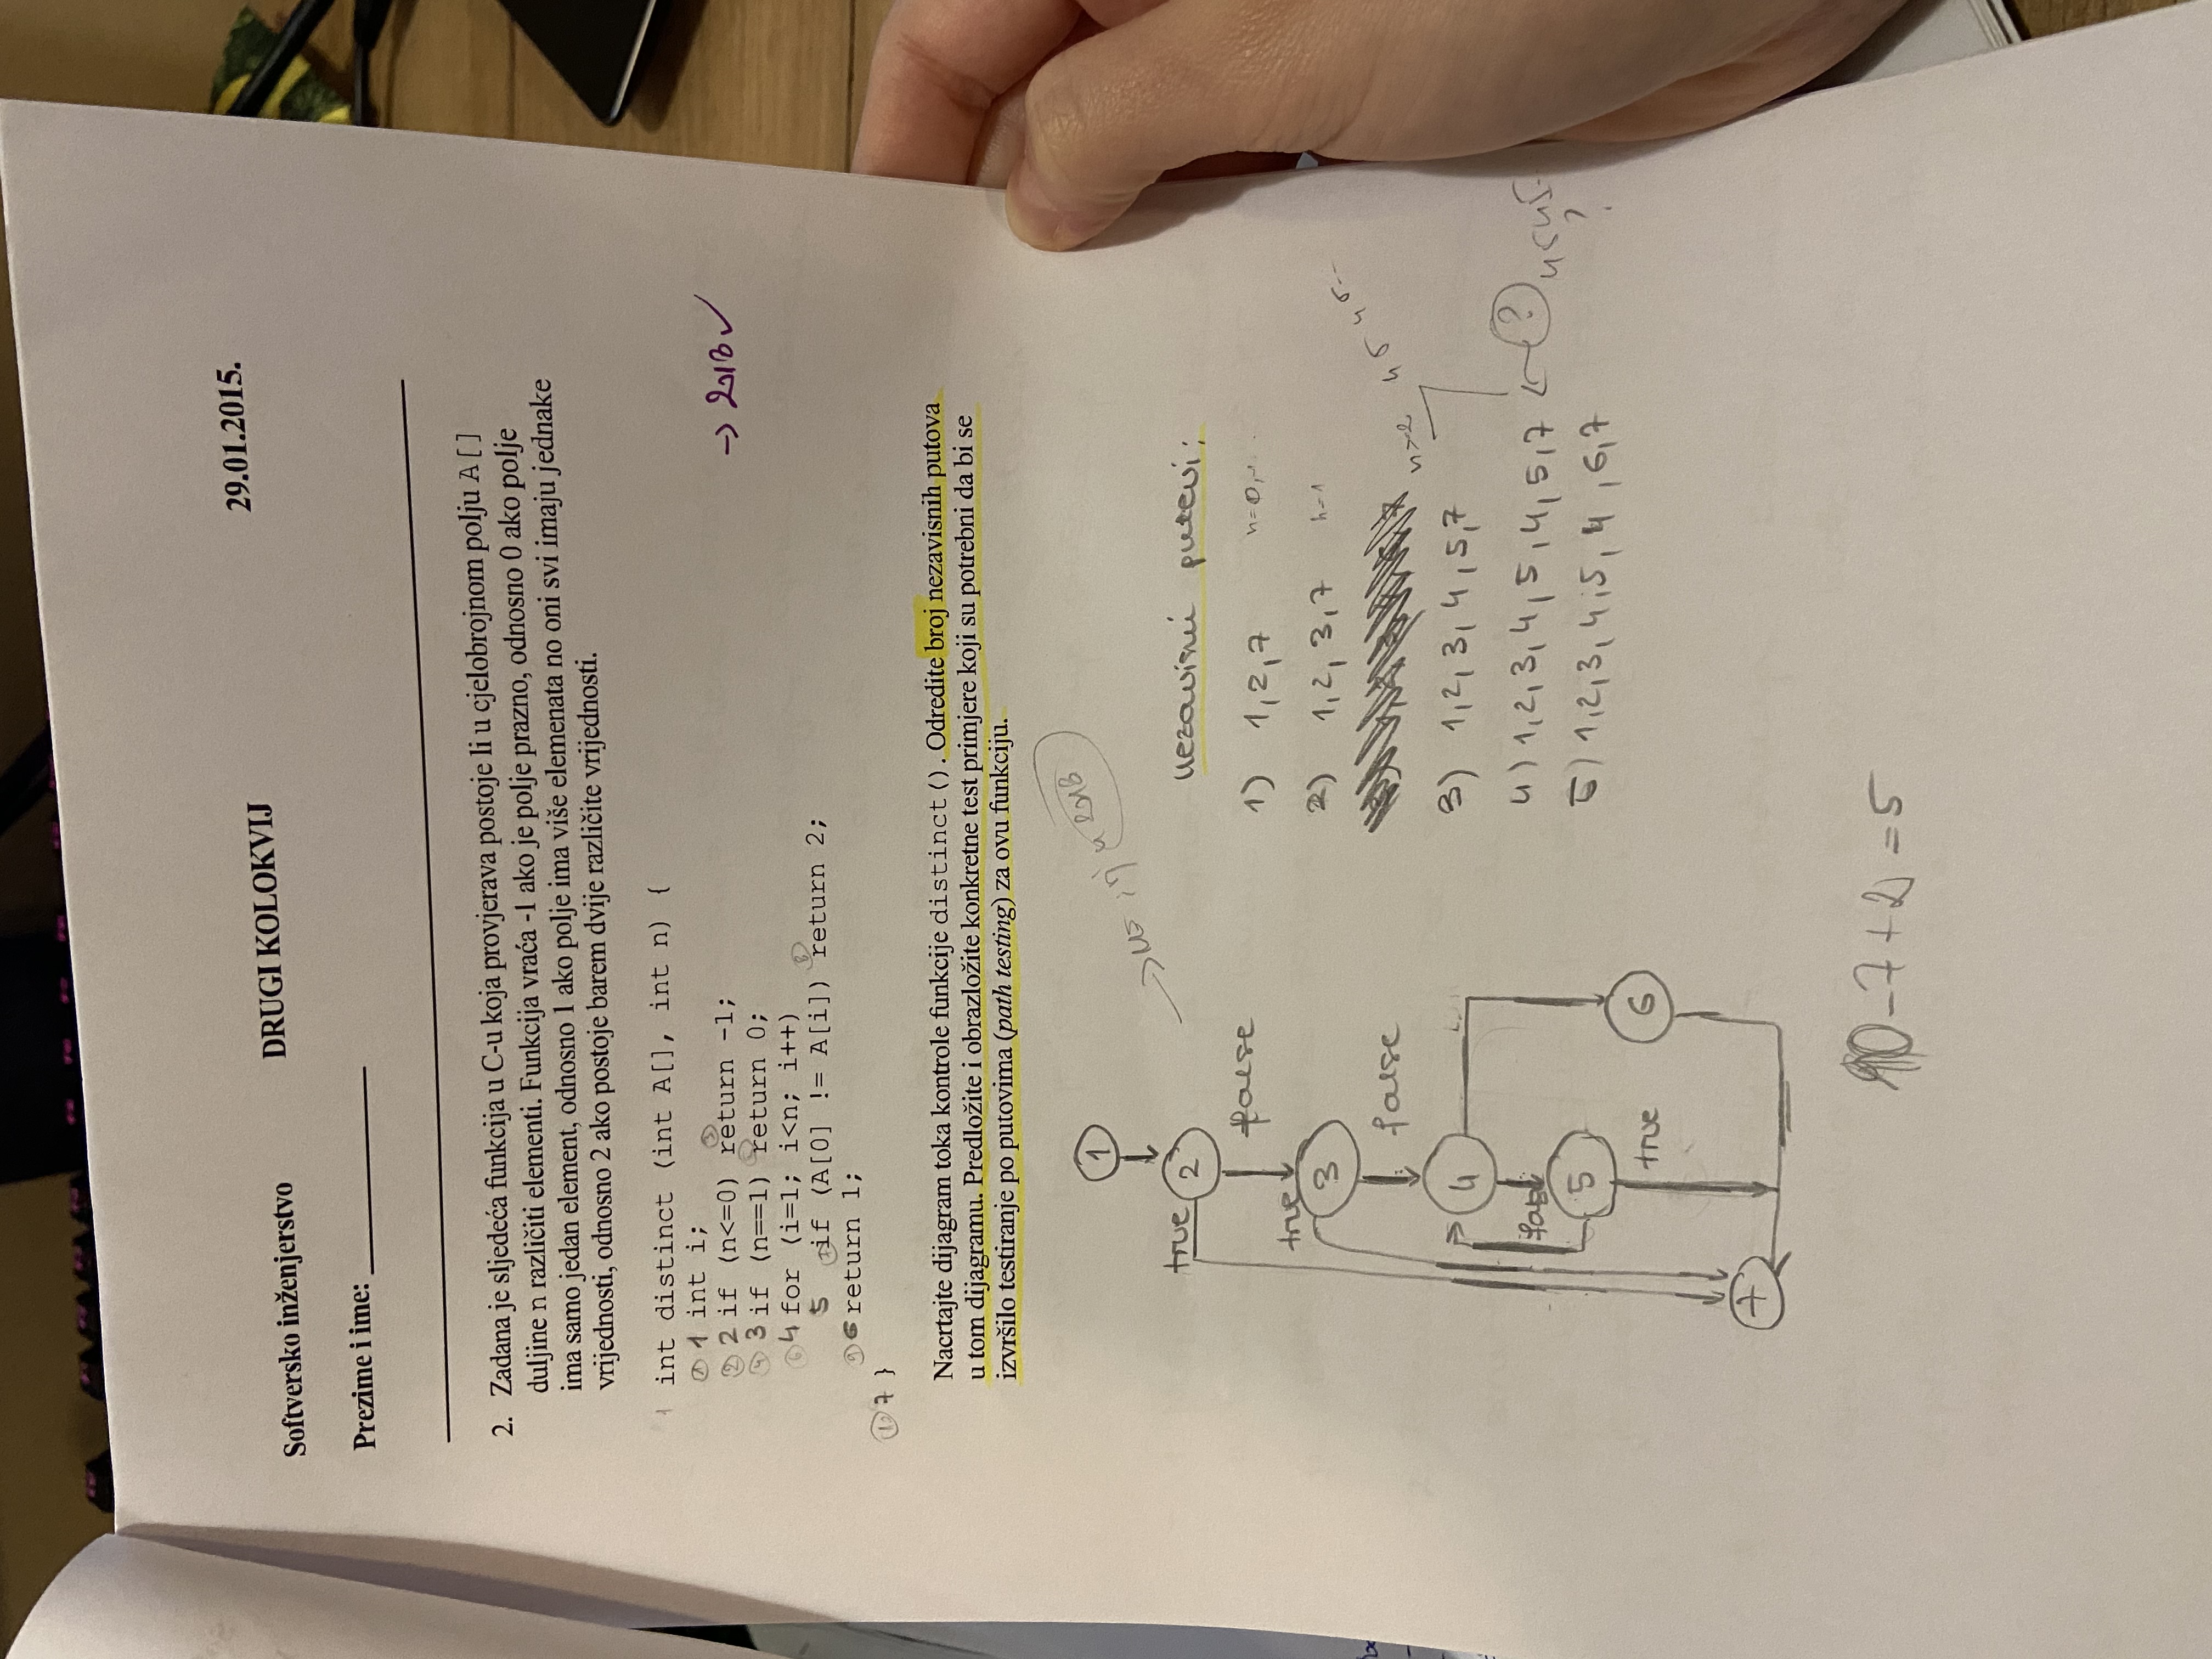 29.01.2015.
Softversko inženjerstvo DRUGI KOLOKVIJ
Prezime i ime:
2. Zadana je sljedeća funkcija u C-u koja provjerava postoje li u cjelobrojnom polju A[]
duljine n različiti elementi. Funkcija vraća -1 ako je polje prazno, odnosno 0 ako polje
ima samo jedan element, odnosno 1 ako polje ima više elemenata no oni svi imaju jednake
vrijednosti, odnosno 2 ako postoje barem dvije različite vrijednosti.
1 int distinct (int A[], int n) {
① 1 int i;
③
② 2 if (n<=0) return -1;
④ 3 if (n==1) return 0;
⑥ 4 for (i=1; i<n; i++)
⑧
5 ⑦ if (A[0] != A[i]) return 2;
⑨ 6 return 1;
⑩ 7 }
→ 2018 ✓
Nacrtajte dijagram toka kontrole funkcije distinct(). Odredite broj nezavisnih putova
u tom dijagramu. Predložite i obrazložite konkretne test primjere koji su potrebni da bi se
izvršilo testiranje po putovima (path testing) za ovu funkciju.
1
true 2
false
true
3
false
4
5
true
6
7
10-7+2=5
2018
nezavisni putevi:
1) 1,2,7 n=0,
2) 1,2,3,7 n=1
3) 1,2,3,4,5,7
4) 1,2,3,4,5,4,5,7 ← ?
5) 1,2,3,4,5,4,6,7
?